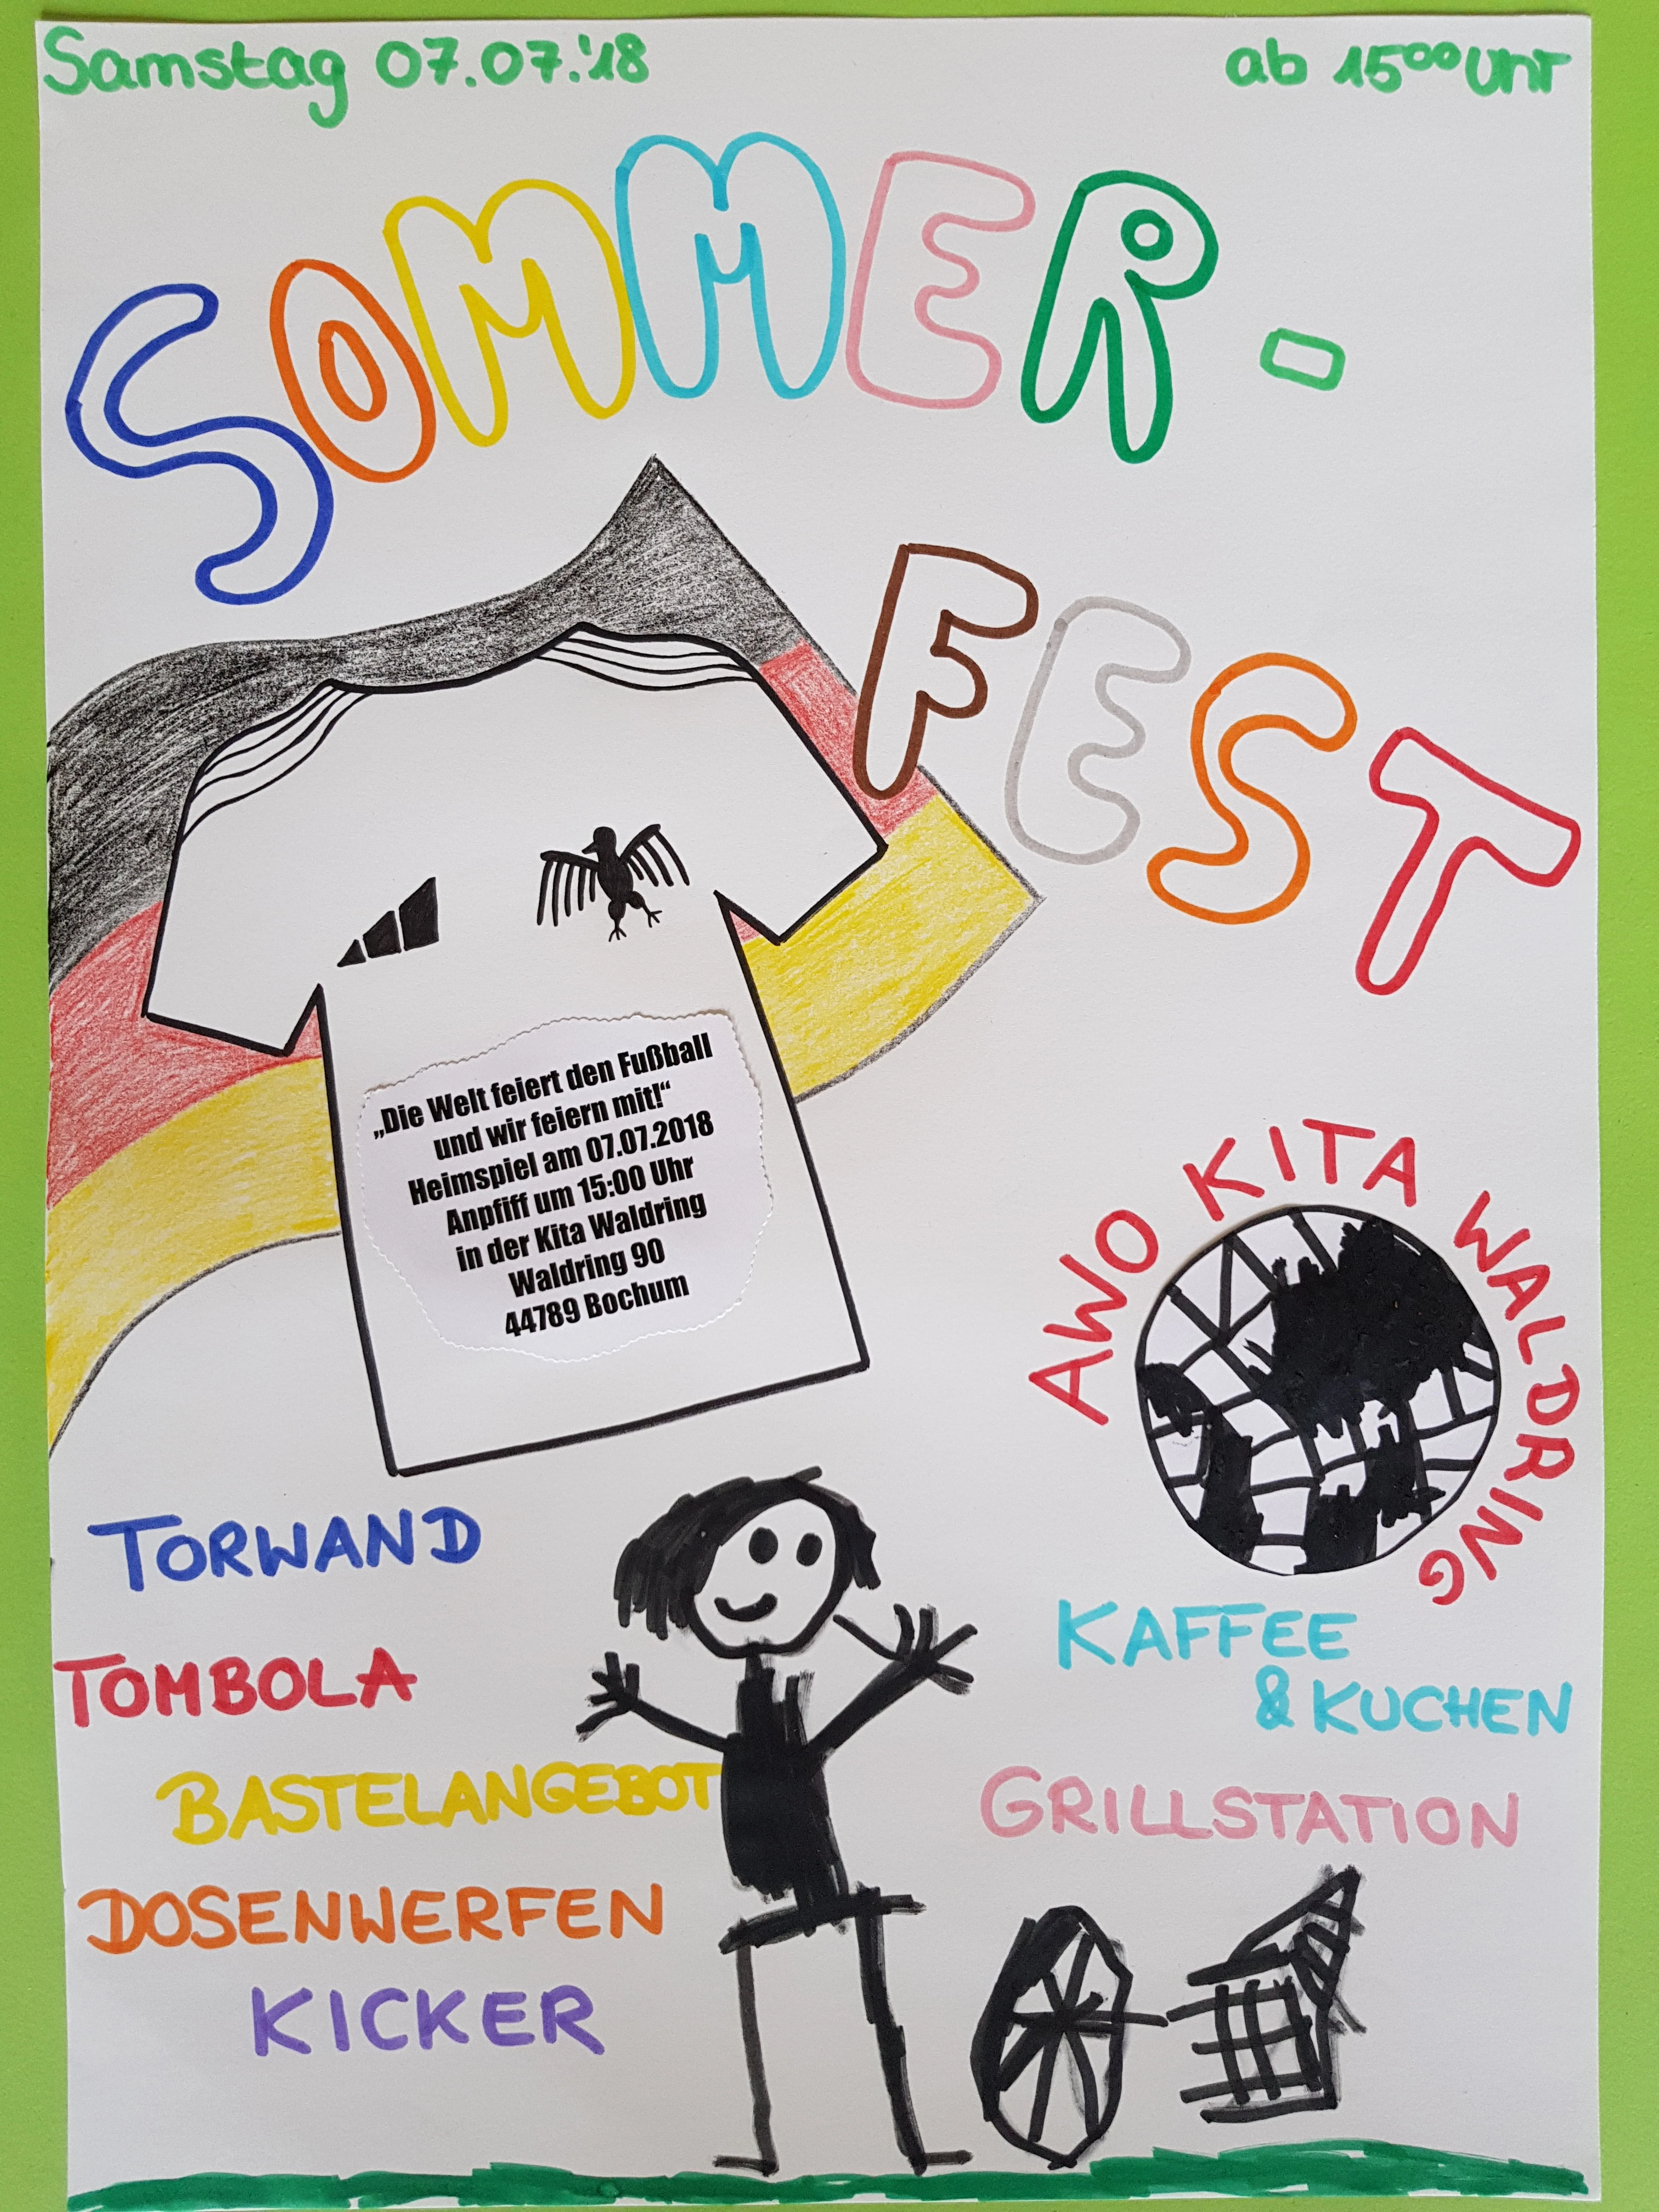 Samstag 07.07.'18
ab 15⁰⁰ Uhr
SOMMER-
FEST
„Die Welt feiert den Fußball
und wir feiern mit!“
Heimspiel am 07.07.2018
Anpfiff um 15:00 Uhr
in der Kita Waldring
Waldring 90
44789 Bochum
AWO KITA WALDRING
TORWAND
TOMBOLA
BASTELANGEBOT
DOSENWERFEN
KICKER
KAFFEE
& KUCHEN
GRILLSTATION